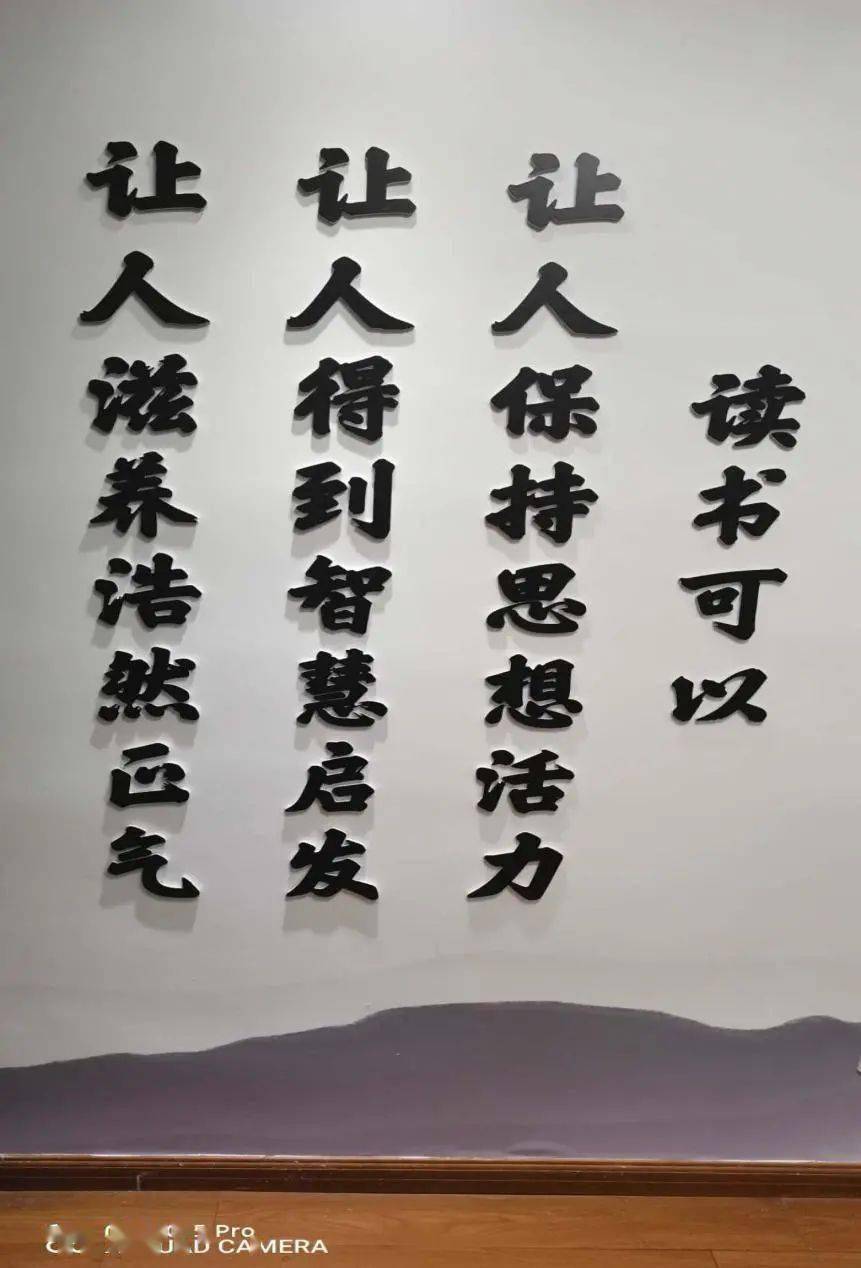 读书可以
让人保持思想活力
让人得到智慧启发
让人滋养浩然正气
5 Pro
CAMERA